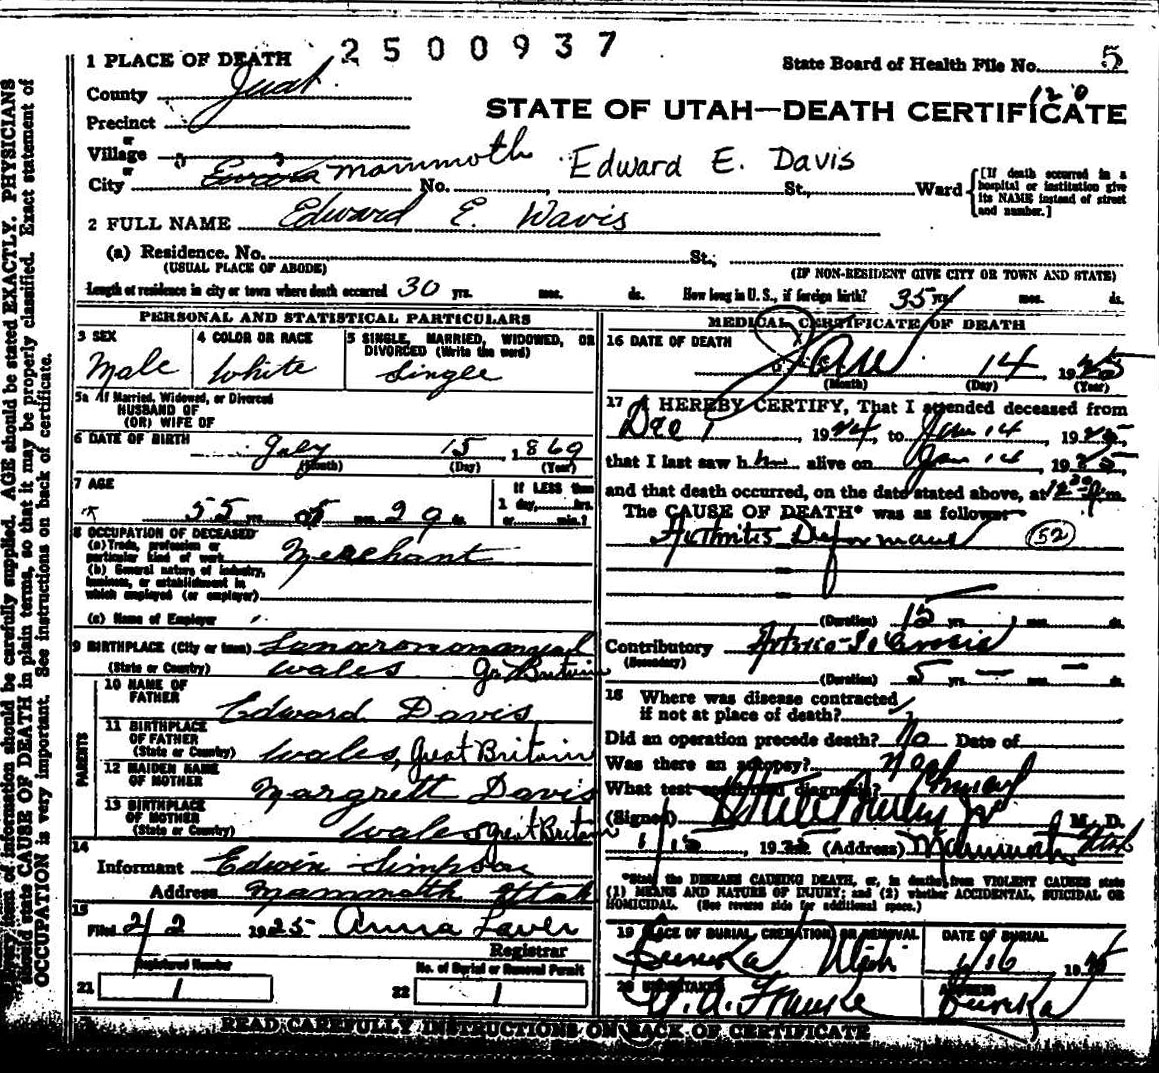 2500937
1 PLACE OF DEATH
State Board of Health File No. 5
County Juab
120
STATE OF UTAH—DEATH CERTIFICATE
Precinct
or
Village
or
City Eureka Mammoth No. St., Ward
Edward E. Davis
[If death occurred in a hospital or institution give its NAME instead of street and number.]
2 FULL NAME Edward E. Davis
(a) Residence. No. St.;
(USUAL PLACE OF ABODE) (IF NON-RESIDENT GIVE CITY OR TOWN AND STATE)
Length of residence in city or town where death occurred 30 yrs. mos. ds. How long in U. S., if foreign birth? 35 yrs. mos. ds.
PERSONAL AND STATISTICAL PARTICULARS
3 SEX
Male
4 COLOR OR RACE
White
5 SINGLE, MARRIED, WIDOWED, OR
DIVORCED (Write the word)
Single
5a If Married, Widowed, or Divorced
HUSBAND OF
(OR) WIFE OF
6 DATE OF BIRTH
July 15 1869
(Month) (Day) (Year)
7 AGE
55 yrs. 05 mos. 29 ds.
If LESS than
1 day, hrs.
or min.?
8 OCCUPATION OF DECEASED
(a) Trade, profession or
particular kind of work Merchant
(b) General nature of industry,
business, or establishment in
which employed (or employer)
(c) Name of Employer
9 BIRTHPLACE (City or town)
(State or Country) Wales Gr. Britain
PARENTS
10 NAME OF
FATHER Edward Davis
11 BIRTHPLACE
OF FATHER
(State or Country) Wales, Great Britain
12 MAIDEN NAME
OF MOTHER Margrett Davis
13 BIRTHPLACE
OF MOTHER
(State or Country) Wales Great Britain
14
Informant Edwin Simpson
Address Mammoth Utah
15
Filed 2/2 1925 Anna Laver
Registrar
Registered Number
21 1
No. of Burial or Removal Permit
22 1
MEDICAL CERTIFICATE OF DEATH
16 DATE OF DEATH
Jan 14 1925
(Month) (Day) (Year)
17 I HEREBY CERTIFY, That I attended deceased from
Dec 1, 1924, to Jan 14, 1925,
that I last saw h im alive on Jan 14, 1925,
and that death occurred, on the date stated above, at 12 30 m.
The CAUSE OF DEATH* was as follows:
Arthritis Deformans (52)
(Duration) 12 yrs. mos. ds.
Contributory Arterio-Sclerosis
(Secondary)
(Duration) 5 yrs. — mos. — ds.
18 Where was disease contracted
if not at place of death?
Did an operation precede death? No Date of
Was there an autopsy? No
What test confirmed diagnosis? Physical
(Signed) M. D.
1/15, 1925 (Address) Mammoth, Utah
*State the DISEASE CAUSING DEATH, or, in deaths from VIOLENT CAUSES state
(1) MEANS AND NATURE OF INJURY; and (2) whether ACCIDENTAL, SUICIDAL OR
HOMICIDAL. (See reverse side for additional space.)
19 PLACE OF BURIAL, CREMATION OR REMOVAL
Eureka Utah
DATE OF BURIAL
1/16 1925
20 UNDERTAKER
ADDRESS
Eureka
READ CAREFULLY INSTRUCTIONS ON BACK OF CERTIFICATE
item of information should be carefully supplied. AGE should be stated EXACTLY. PHYSICIANS
should state CAUSE OF DEATH in plain terms, so that it may be properly classified. Exact statement of
OCCUPATION is very important. See instructions on back of certificate.